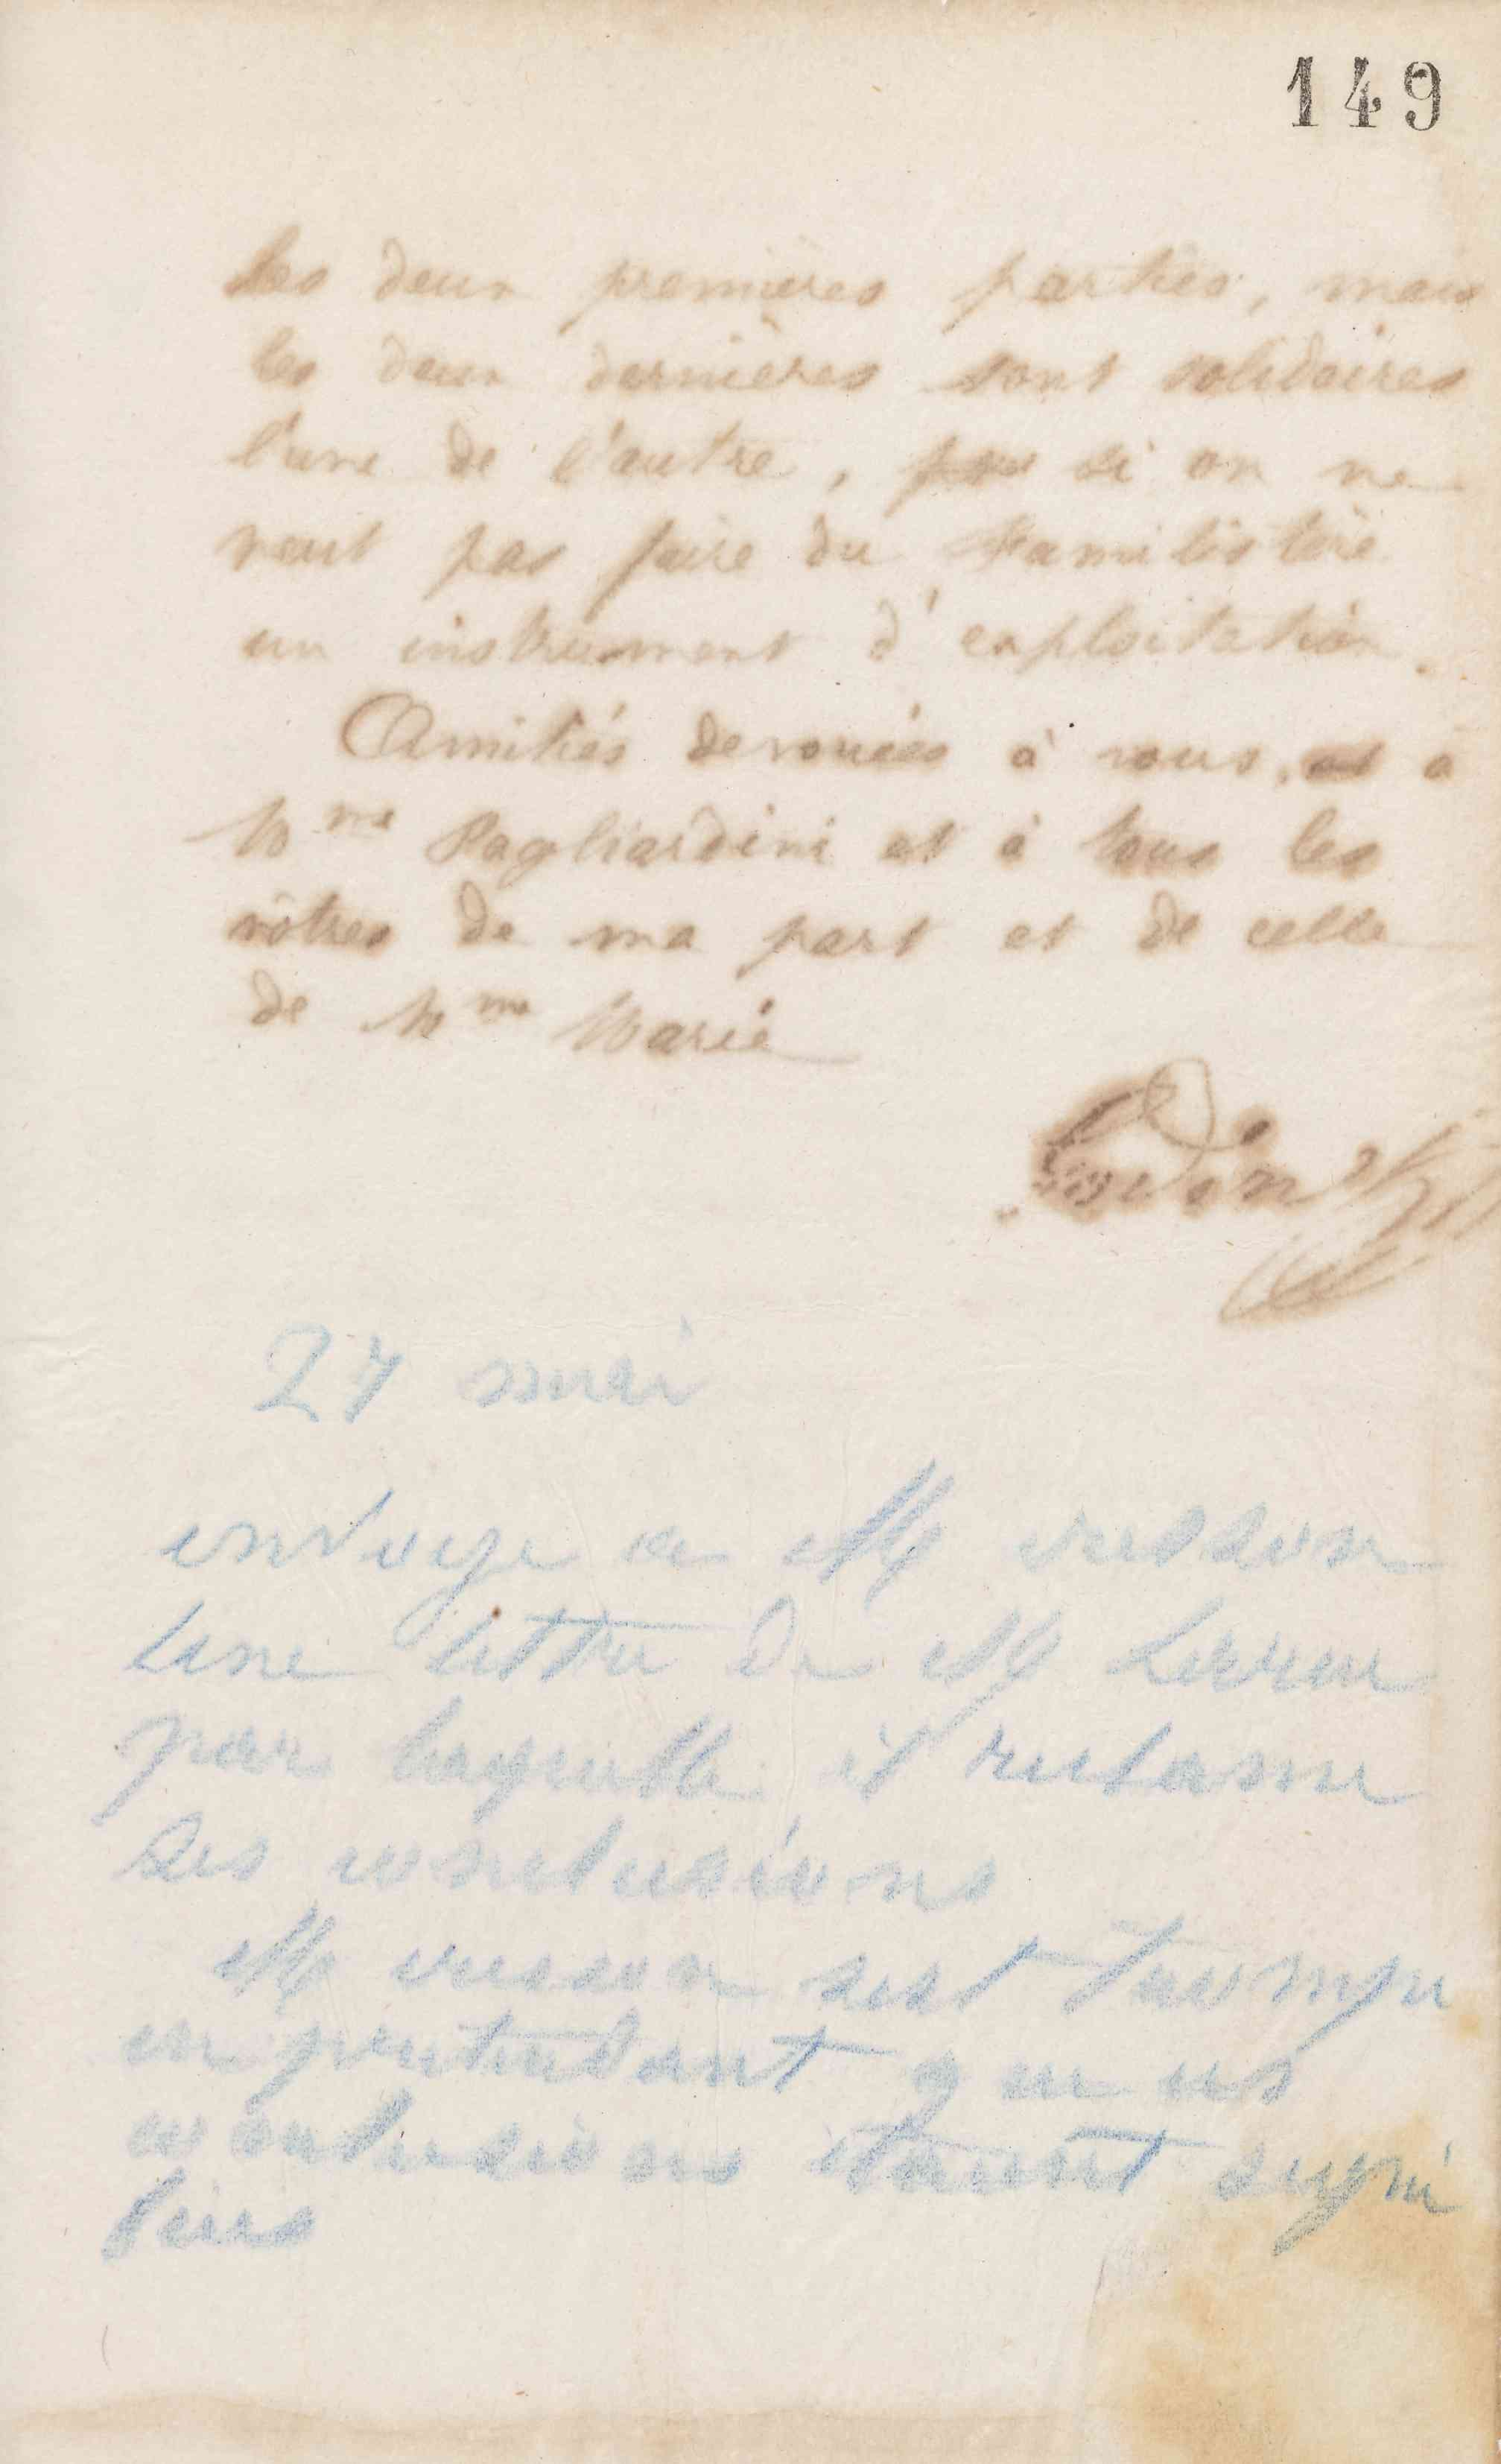 149
les deux premières parties, mais
les deux dernières sont solidaires
l'une de l'autre, si on ne
veut pas faire du Familistère
un instrument d'exploitation.
Amitiés dévouées à vous, et à
Mme Pagliardini et à tous les
vôtres de ma part et de celle
de Mme Marie
Godin
27 mai
envoye a M
une lettre de M
par laquelle il reclame
ses conclusions
M sest trompe
en pretendant que ces
conclusions etaient